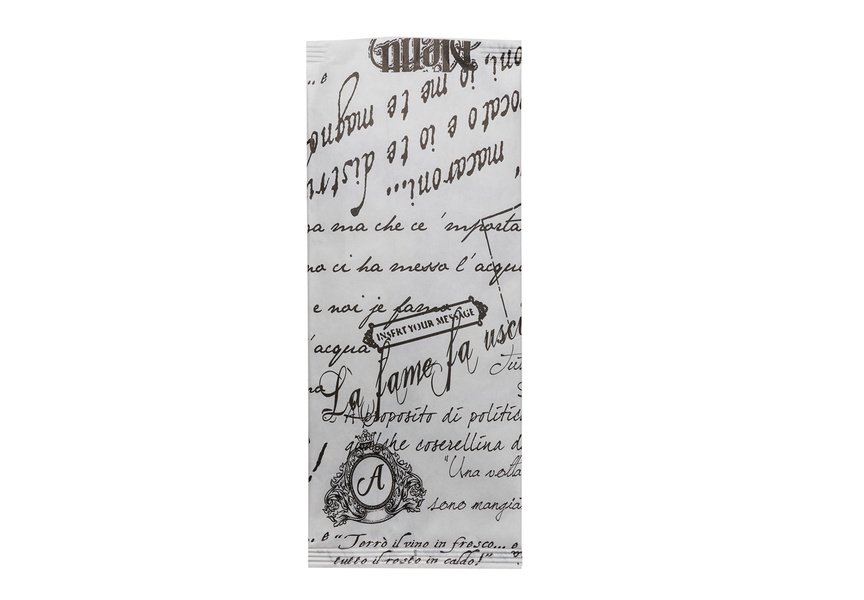 Menu
oni,
"
e
io me te magno
vocato e io te distru
macaroni..."
a ma che ce 'mporta
no ci ha messo l'acqua
e noi je famo
INSERT YOUR MESSAGE
'acqua
La fame fa usci
na
A proposito di politic
qualche coserellina d
"Una volta
!
A
sono mangia
e "Terrò il vino in fresco... e
tutto il resto in caldo!"